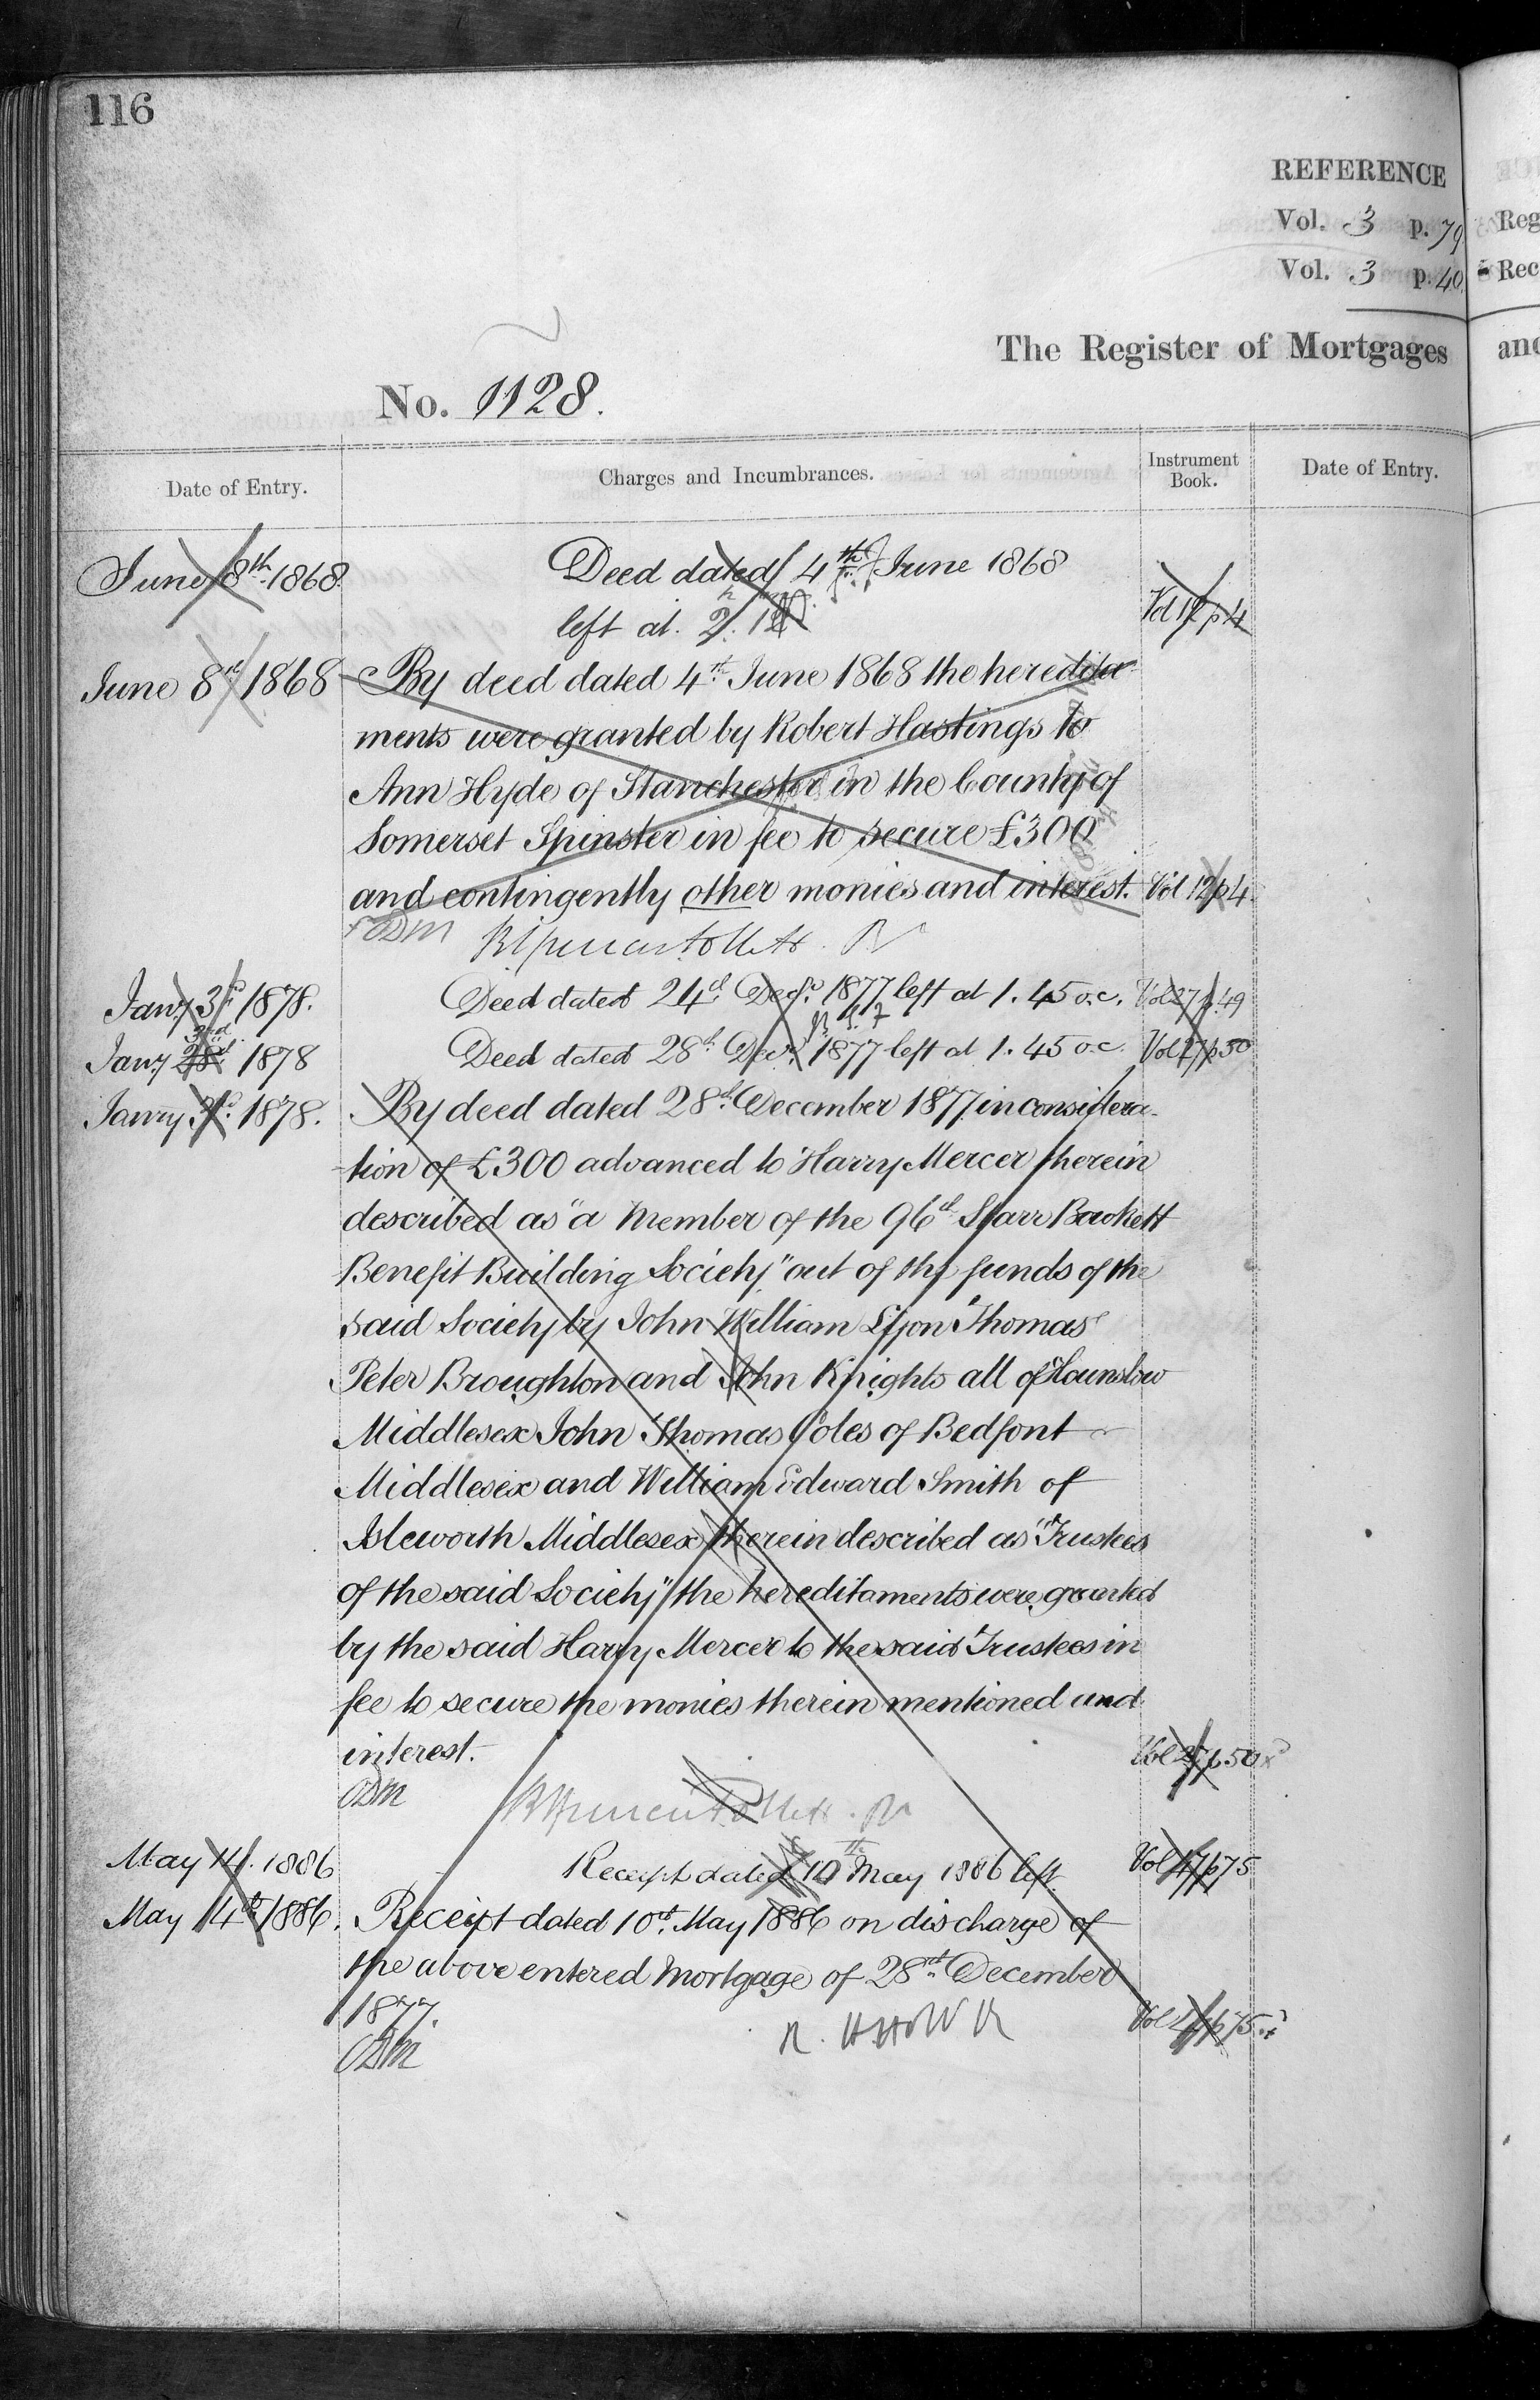 116
REFERENCE
Vol. 3 p. 79 Reg
Vol. 3 p. 40. Rec
The Register of Mortgages and
No. 1128.
Date of Entry. Charges and Incumbrances. Instrument Book. Date of Entry.
June 8th 1868 Deed dated 4th June 1868
left at 2. Vol 12 p 4
June 8th 1868 By deed dated 4th June 1868 the heredita-
ments were granted by Robert Hastings to
Ann Hyde of Stanchester in the County of
Somerset Spinster in fee to secure £300
and contingently other monies and interest. Vol 12 p 4.
ODM
Janry 3rd 1878. Deed dated 24th Decr. 1877 left at 1.45 o.c. Vol 27 p. 49
Janry 28th 3rd 1878 Deed dated 28th Decr. 1877 left at 1.45 o.c. Vol 27 p 50
Janry 3rd 1878. By deed dated 28th December 1877 in considera-
-tion of £300 advanced to Harry Mercer therein
described as "a Member of the 96th Starr Bowkett
Benefit Building Society" out of the funds of the
said Society by John William Lyon Thomas
Peter Broughton and John Knights all of Hounslow
Middlesex John Thomas Coles of Bedfont
Middlesex and William Edward Smith of
Isleworth Middlesex therein described as "Trustees
of the said Society" the hereditaments were granted
by the said Harry Mercer to the said Trustees in
fee to secure the monies therein mentioned and
interest. Vol 27 p 50
ODM
May 14. 1886 Receipt dated 10th May 1886 left Vol 47 p 75
May 14th 1886. Receipt dated 10th May 1886 on discharge of
the above entered Mortgage of 28th December
1877. Vol 47 p 75.
ODM